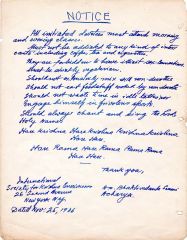 NOTICE
All initiated devotees must attend morning
and evening classes.
Must not be addicted to any kind of intoxi-
cants, including coffee, tea and cigarettes.
They are forbidden to have illicit-sex-connections
Must be strictly vegetarian.
Should not extensively mix with non-devotees
Should not eat foodstuffs cooked by non-devotees
Should not waste time in idle talks nor
Engage himself in frivolous sports
Should always chant and sing the Lord's
Holy names
Hare Krishna Hare Krishna Krishna Krishna
Hare Hare.
Hare Rama Hare Rama Rama Rama
Hare Hare.
Thank you,
International
Society for Krishna Consciousness
26 Second Avenue
New York N.Y.
Dated Nov. 25, 1966
A.C. Bhaktivedanta Swami
Acharya.